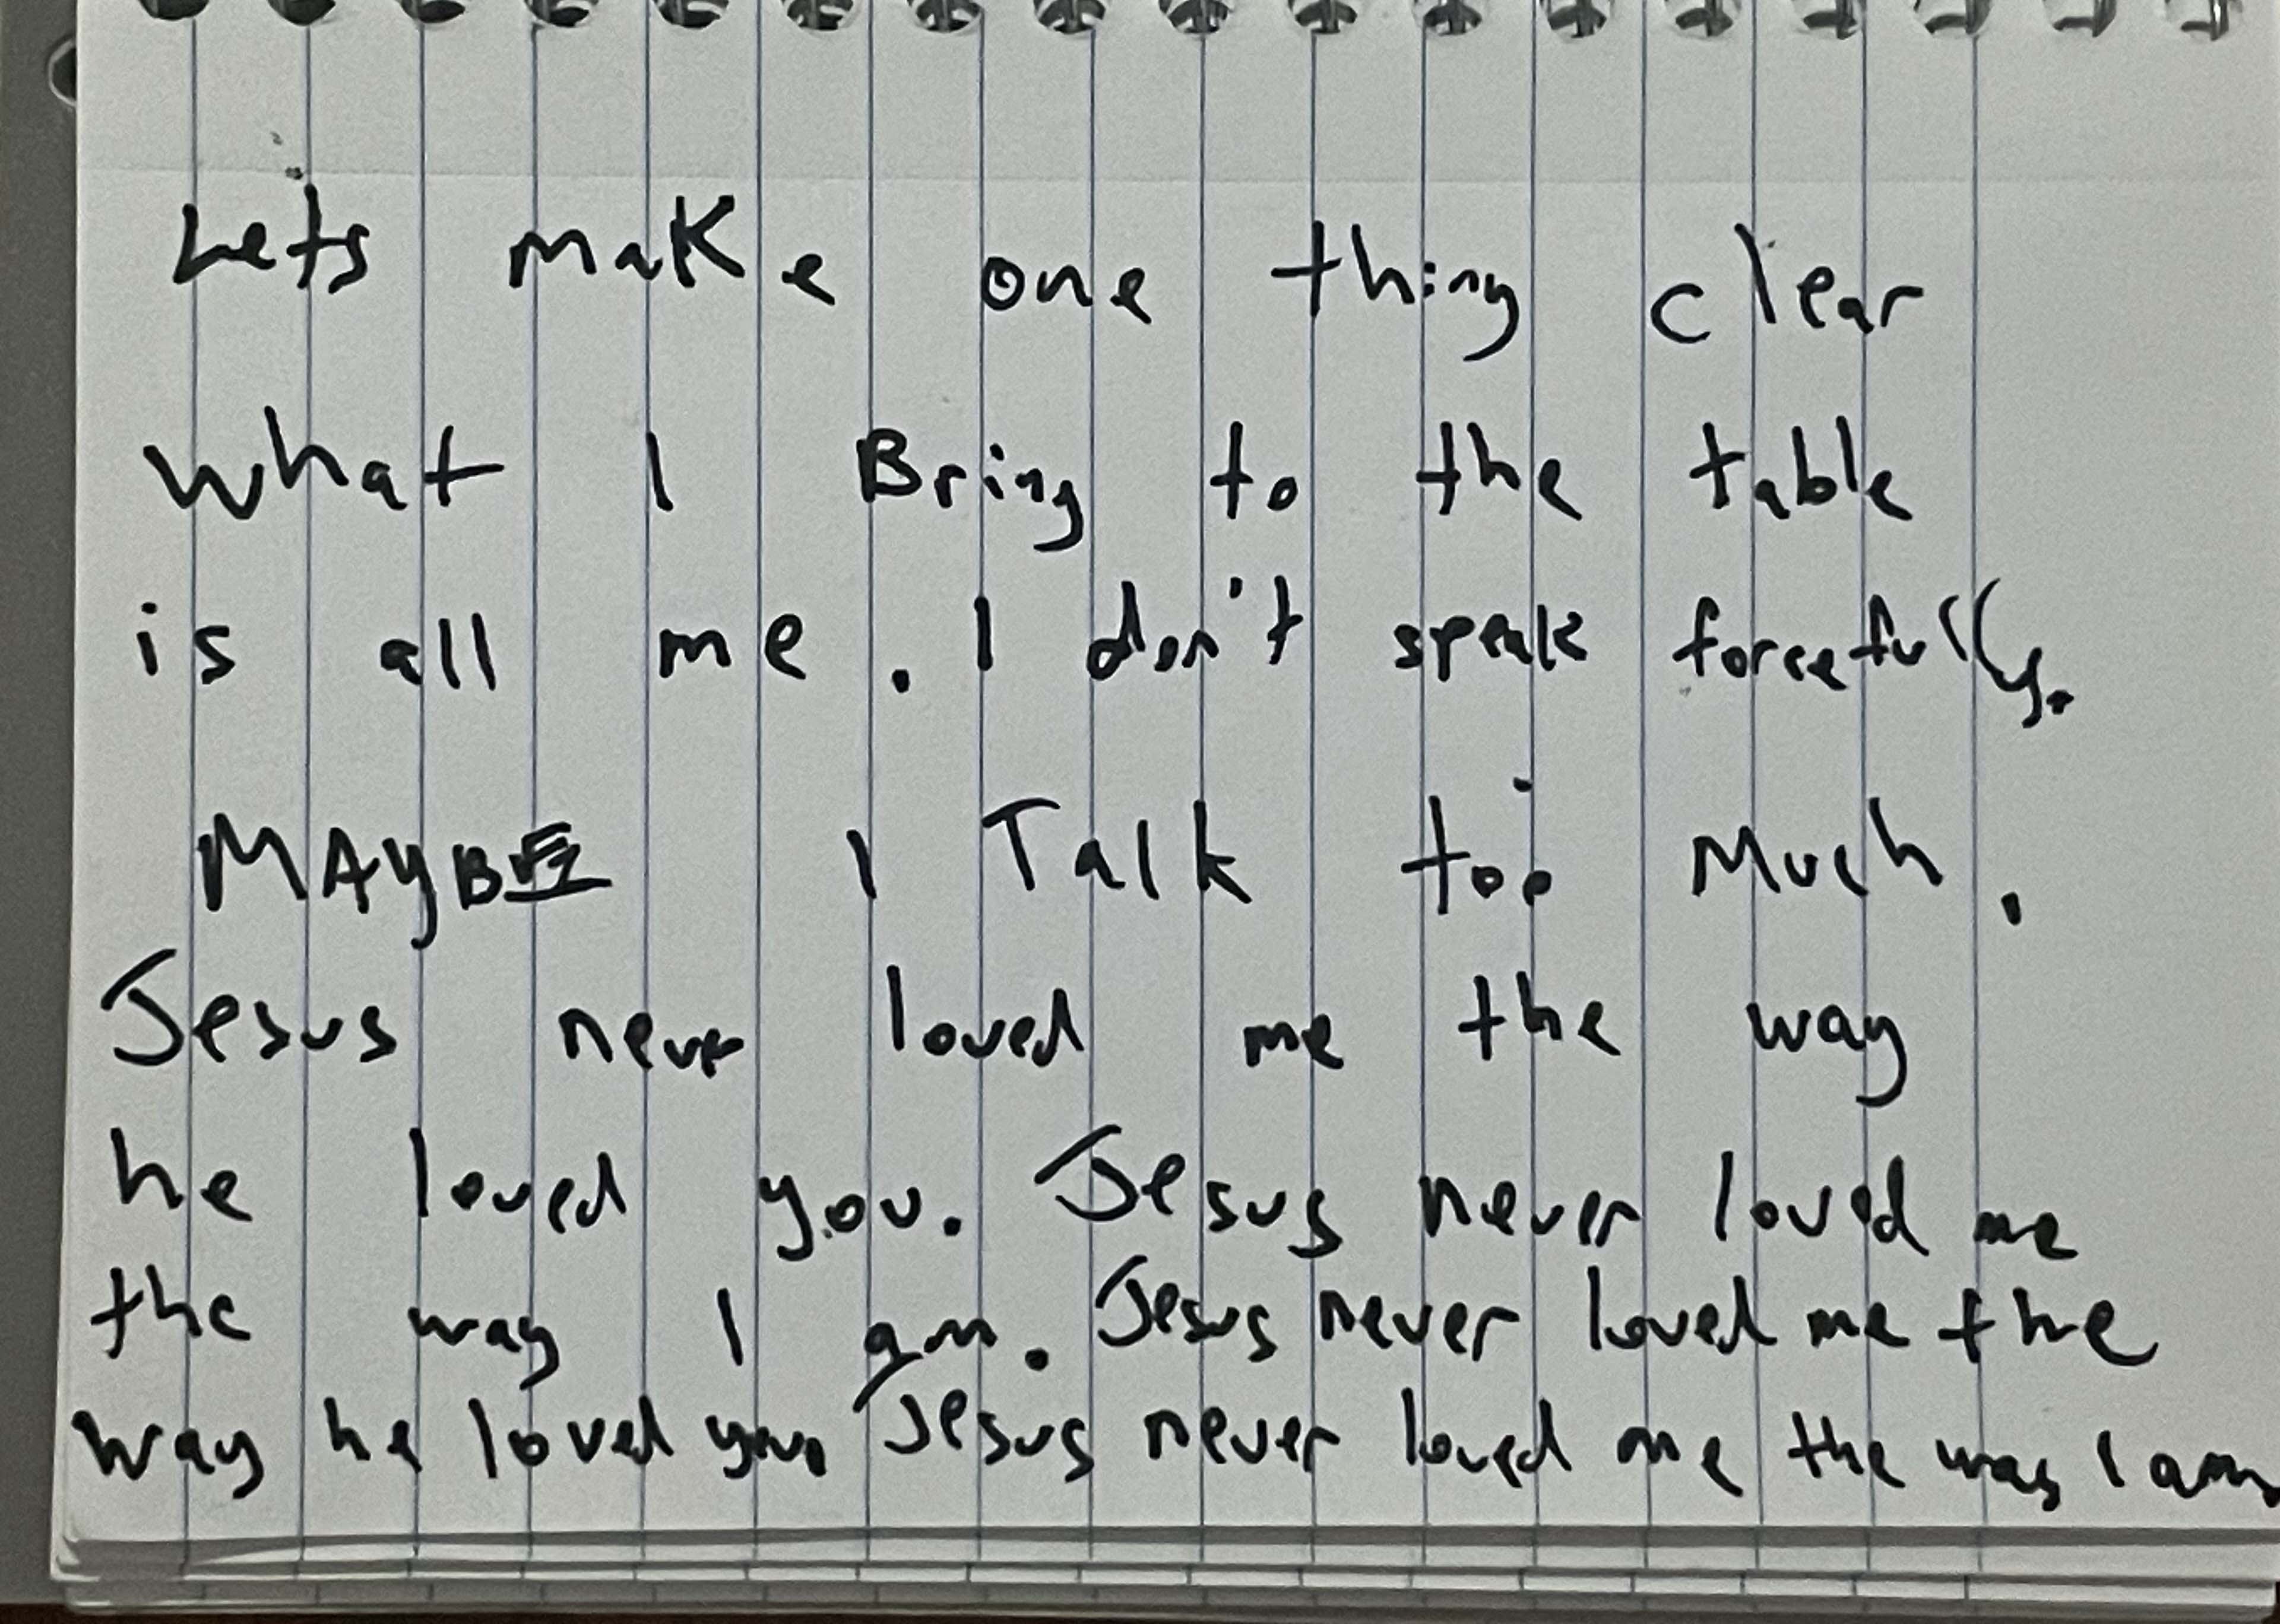 Let's make one thing clear
what I Bring to the table
is all me. I don't speak forcefully.
MAYBE I Talk too Much.
Jesus never loved me the way
he loved you. Jesus never loved me
the way I am. Jesus never loved me the
way he loved you Jesus never loved me the way I am